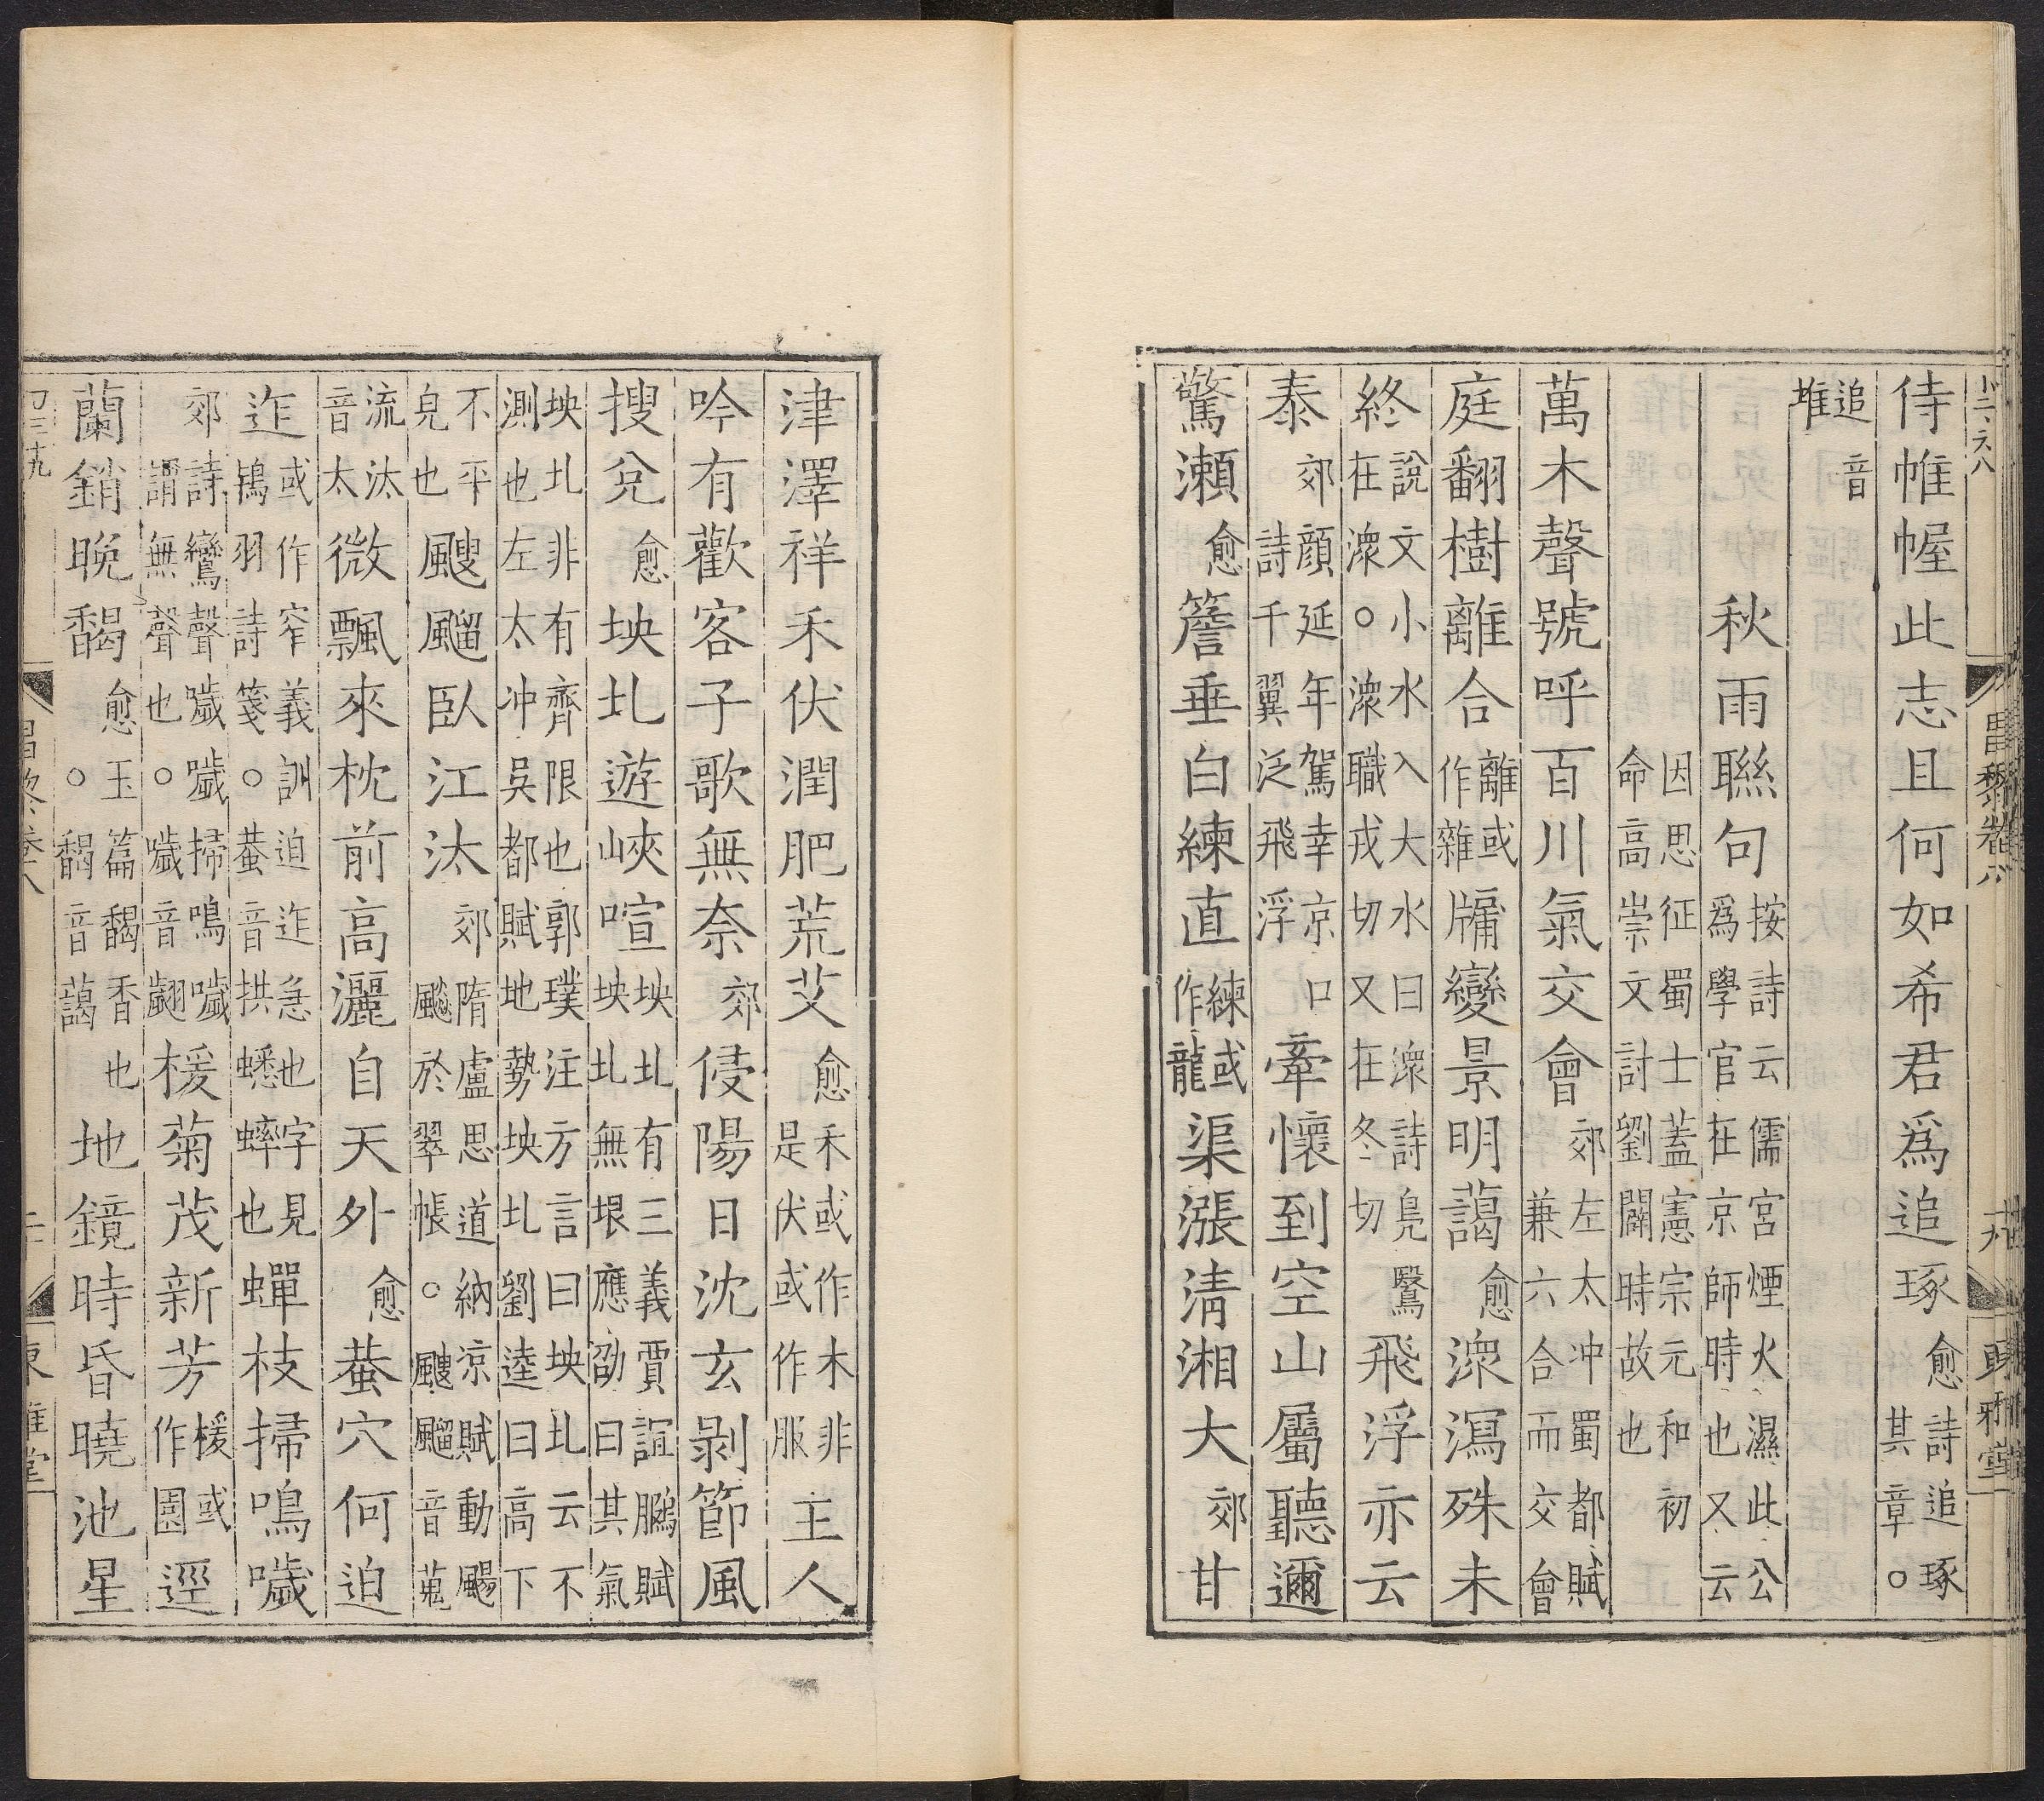 侍帷幄此志且何如希君爲追琢愈詩追琢其章。
追音堆
秋雨聯句按詩云儒宮煙火濕此公爲學官在京師時也又云
因思征蜀士蓋憲宗元和初命高崇文討劉闢時故也
萬木聲號呼百川氣交會郊左太冲蜀都賦兼六合而交會
庭翻樹離合離或作雜牖變景明藹愈潨瀉殊未
終說文小水入大水曰潨詩鳧鷖在潨。潨職戎切又在冬切飛浮亦云
泰郊顏延年駕幸京口詩千翼泛飛浮牽懷到空山屬聽邇
驚瀨愈簷垂白練直練或作龍渠漲清湘大郊甘
津澤祥禾伏潤肥荒艾愈禾或作木非是伏或作服主人
吟有歡客子歌無奈郊侵陽日沈玄剝節風
搜兌愈坱圠遊峽喧坱圠有三義賈誼鵩賦坱圠無垠應劭曰其氣
坱圠非有齊限也郭璞注方言曰坱圠云不測也左太冲吳都賦地勢坱圠劉逵曰高下
不平皃也颼飀臥江汰郊隋盧思道納涼賦動颺飈於翠帳。颼飀音蒐
流汰音太微飄來枕前高灑自天外愈蛬穴何迫
迮或作窄義訓迫迮急也字見鴇羽詩箋。蛬音拱蟋蟀也蟬枝掃鳴噦
郊詩鸞聲噦噦掃鳴噦謂無聲也。噦音翽楥菊茂新芳楥或作園逕
蘭銷晚馤愈玉篇馤香也。馤音藹地鏡時昏曉池星
昌黎卷八
東雅堂